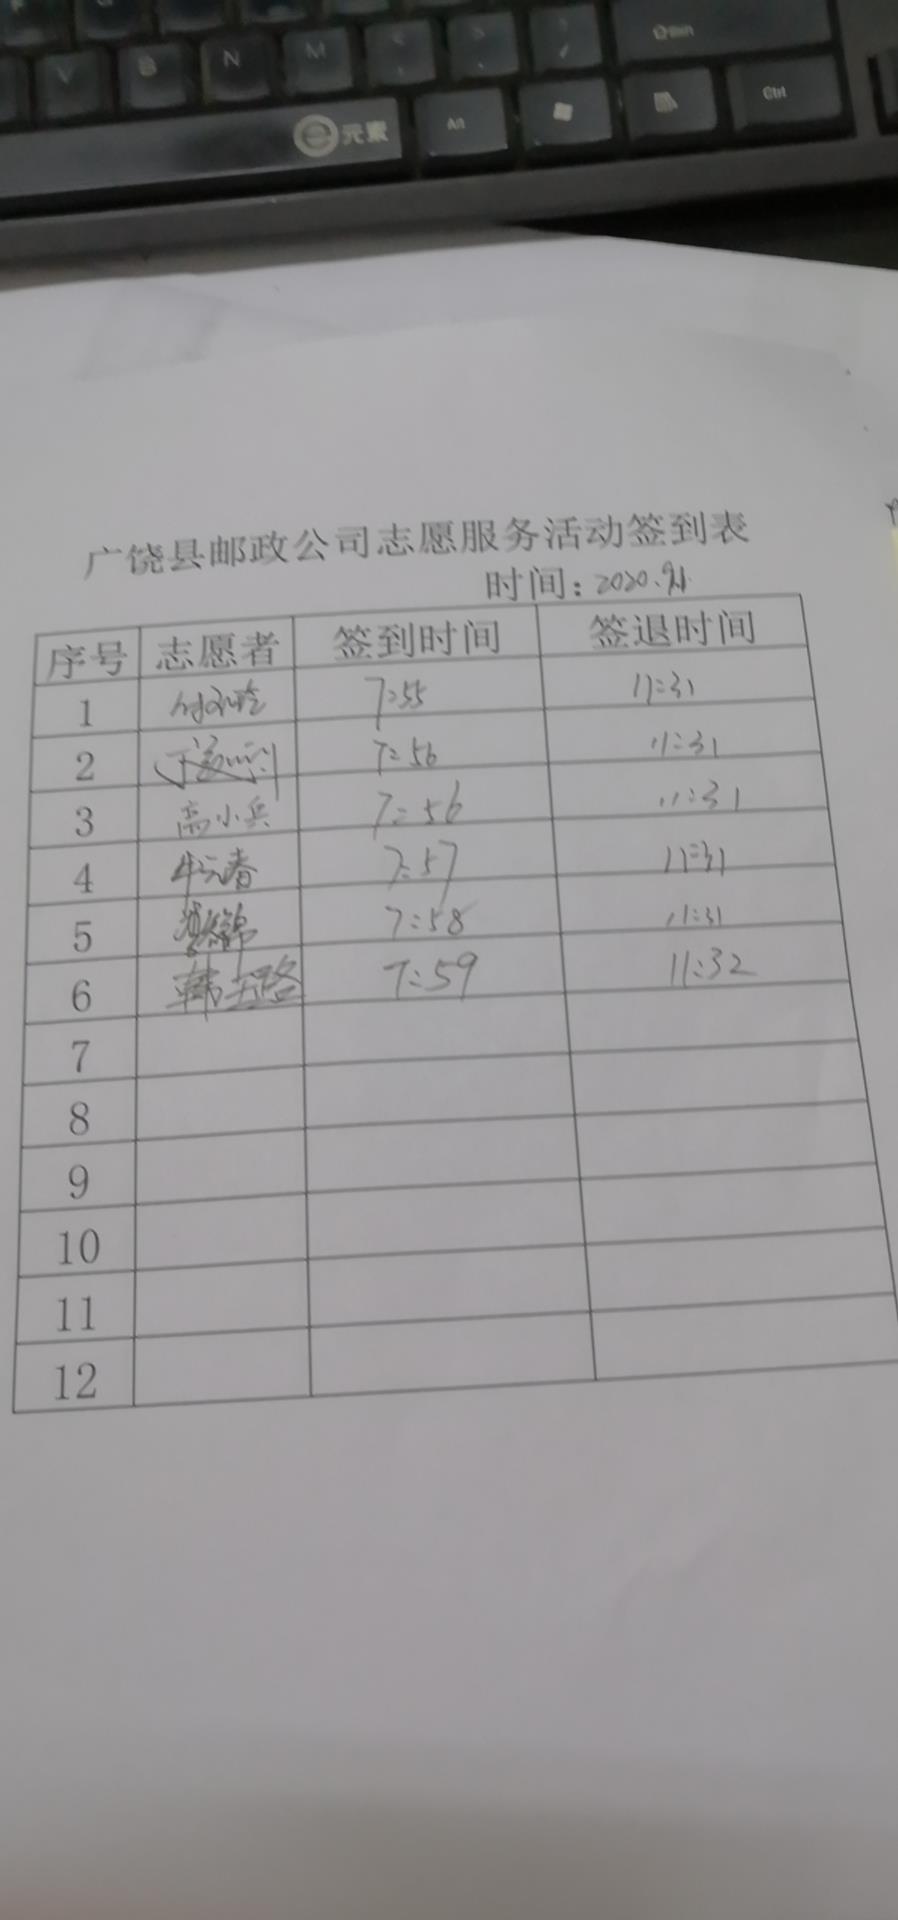 V B N M
Shift
元素 Alt Ctrl
广饶县邮政公司志愿服务活动签到表
时间：2020.9.1
序号 志愿者 签到时间 签退时间
1 7:55 11:31
2 7:56 11:31
3 高小兵 7:56 11:31
4 牛元春 7:57 11:31
5 7:58 11:31
6 韩五路 7:59 11:32
7
8
9
10
11
12